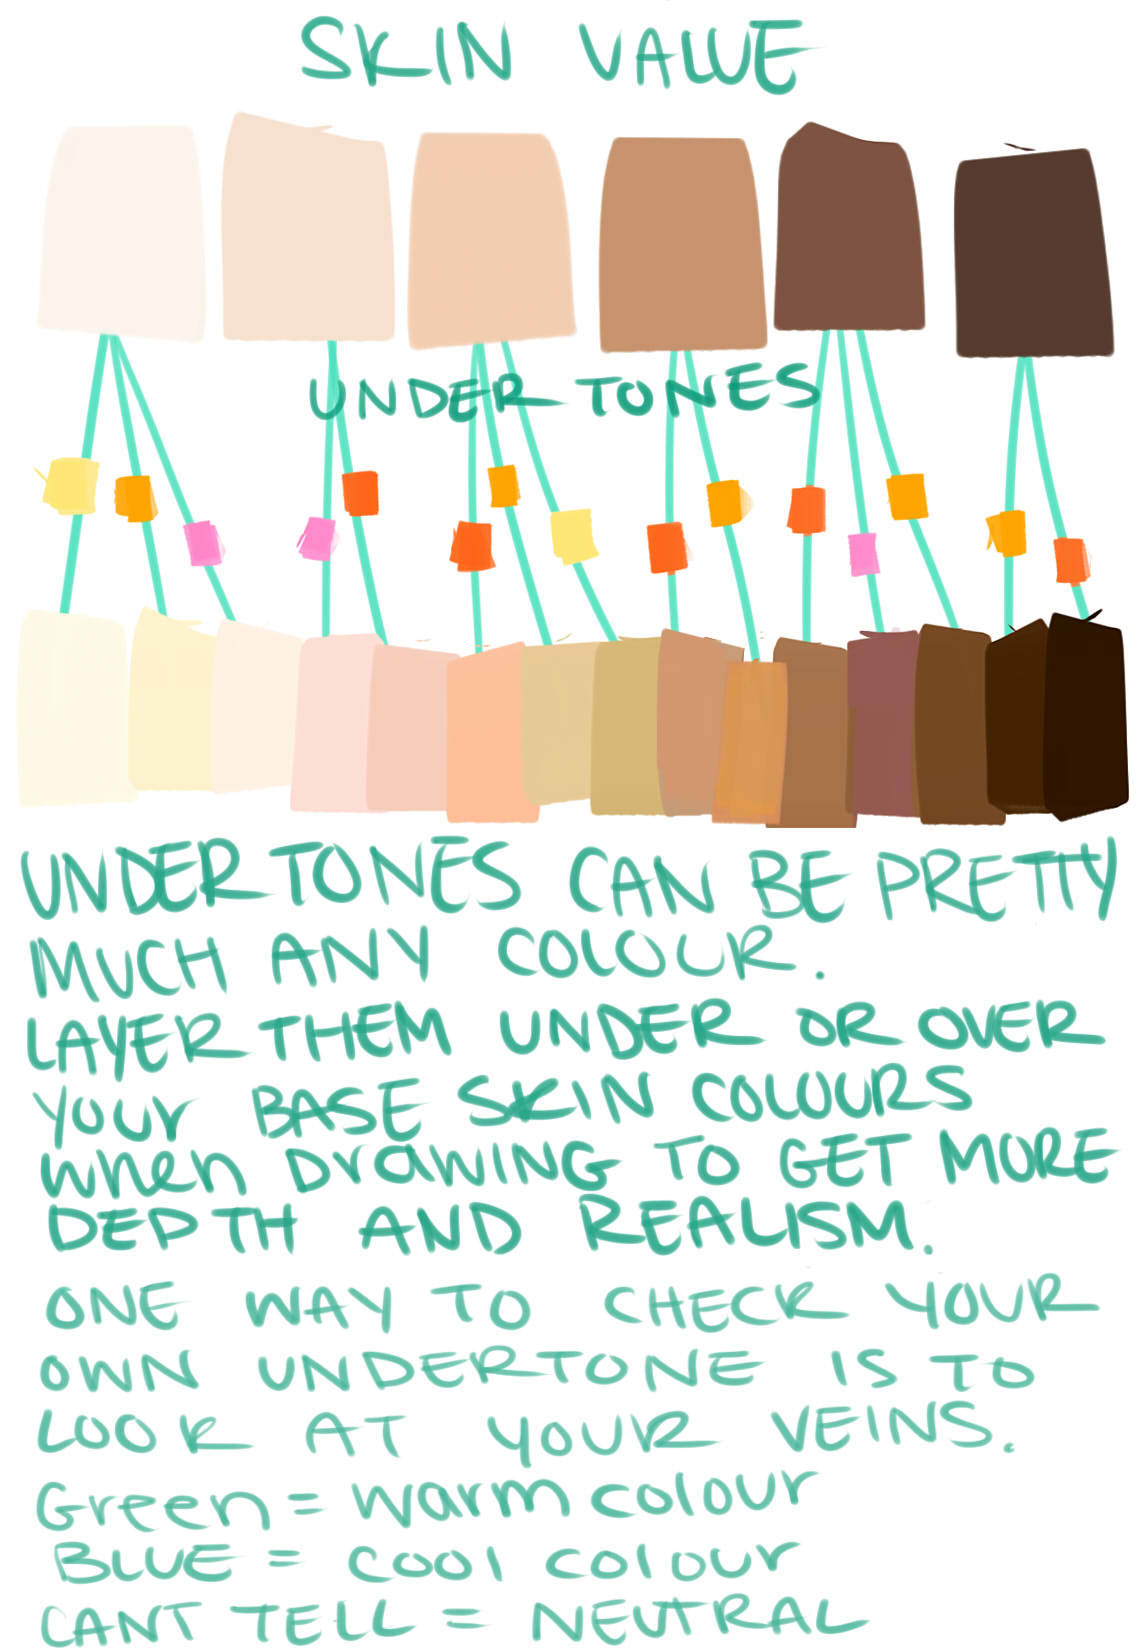 SKIN VALUE
UNDERTONES
UNDERTONES CAN BE PRETTY
MUCH ANY COLOUR.
LAYER THEM UNDER OR OVER
YOUr BASE SKIN COLOURS
when DrawING TO GET MORE
DEPTH AND REALISM.
ONE WAY TO CHECK YOUR
OWN UNDERTONE IS TO
LOOK AT YOUR VEINS.
Green = warm colour
BLUE = cool colour
CANT TELL = NEUTRAL